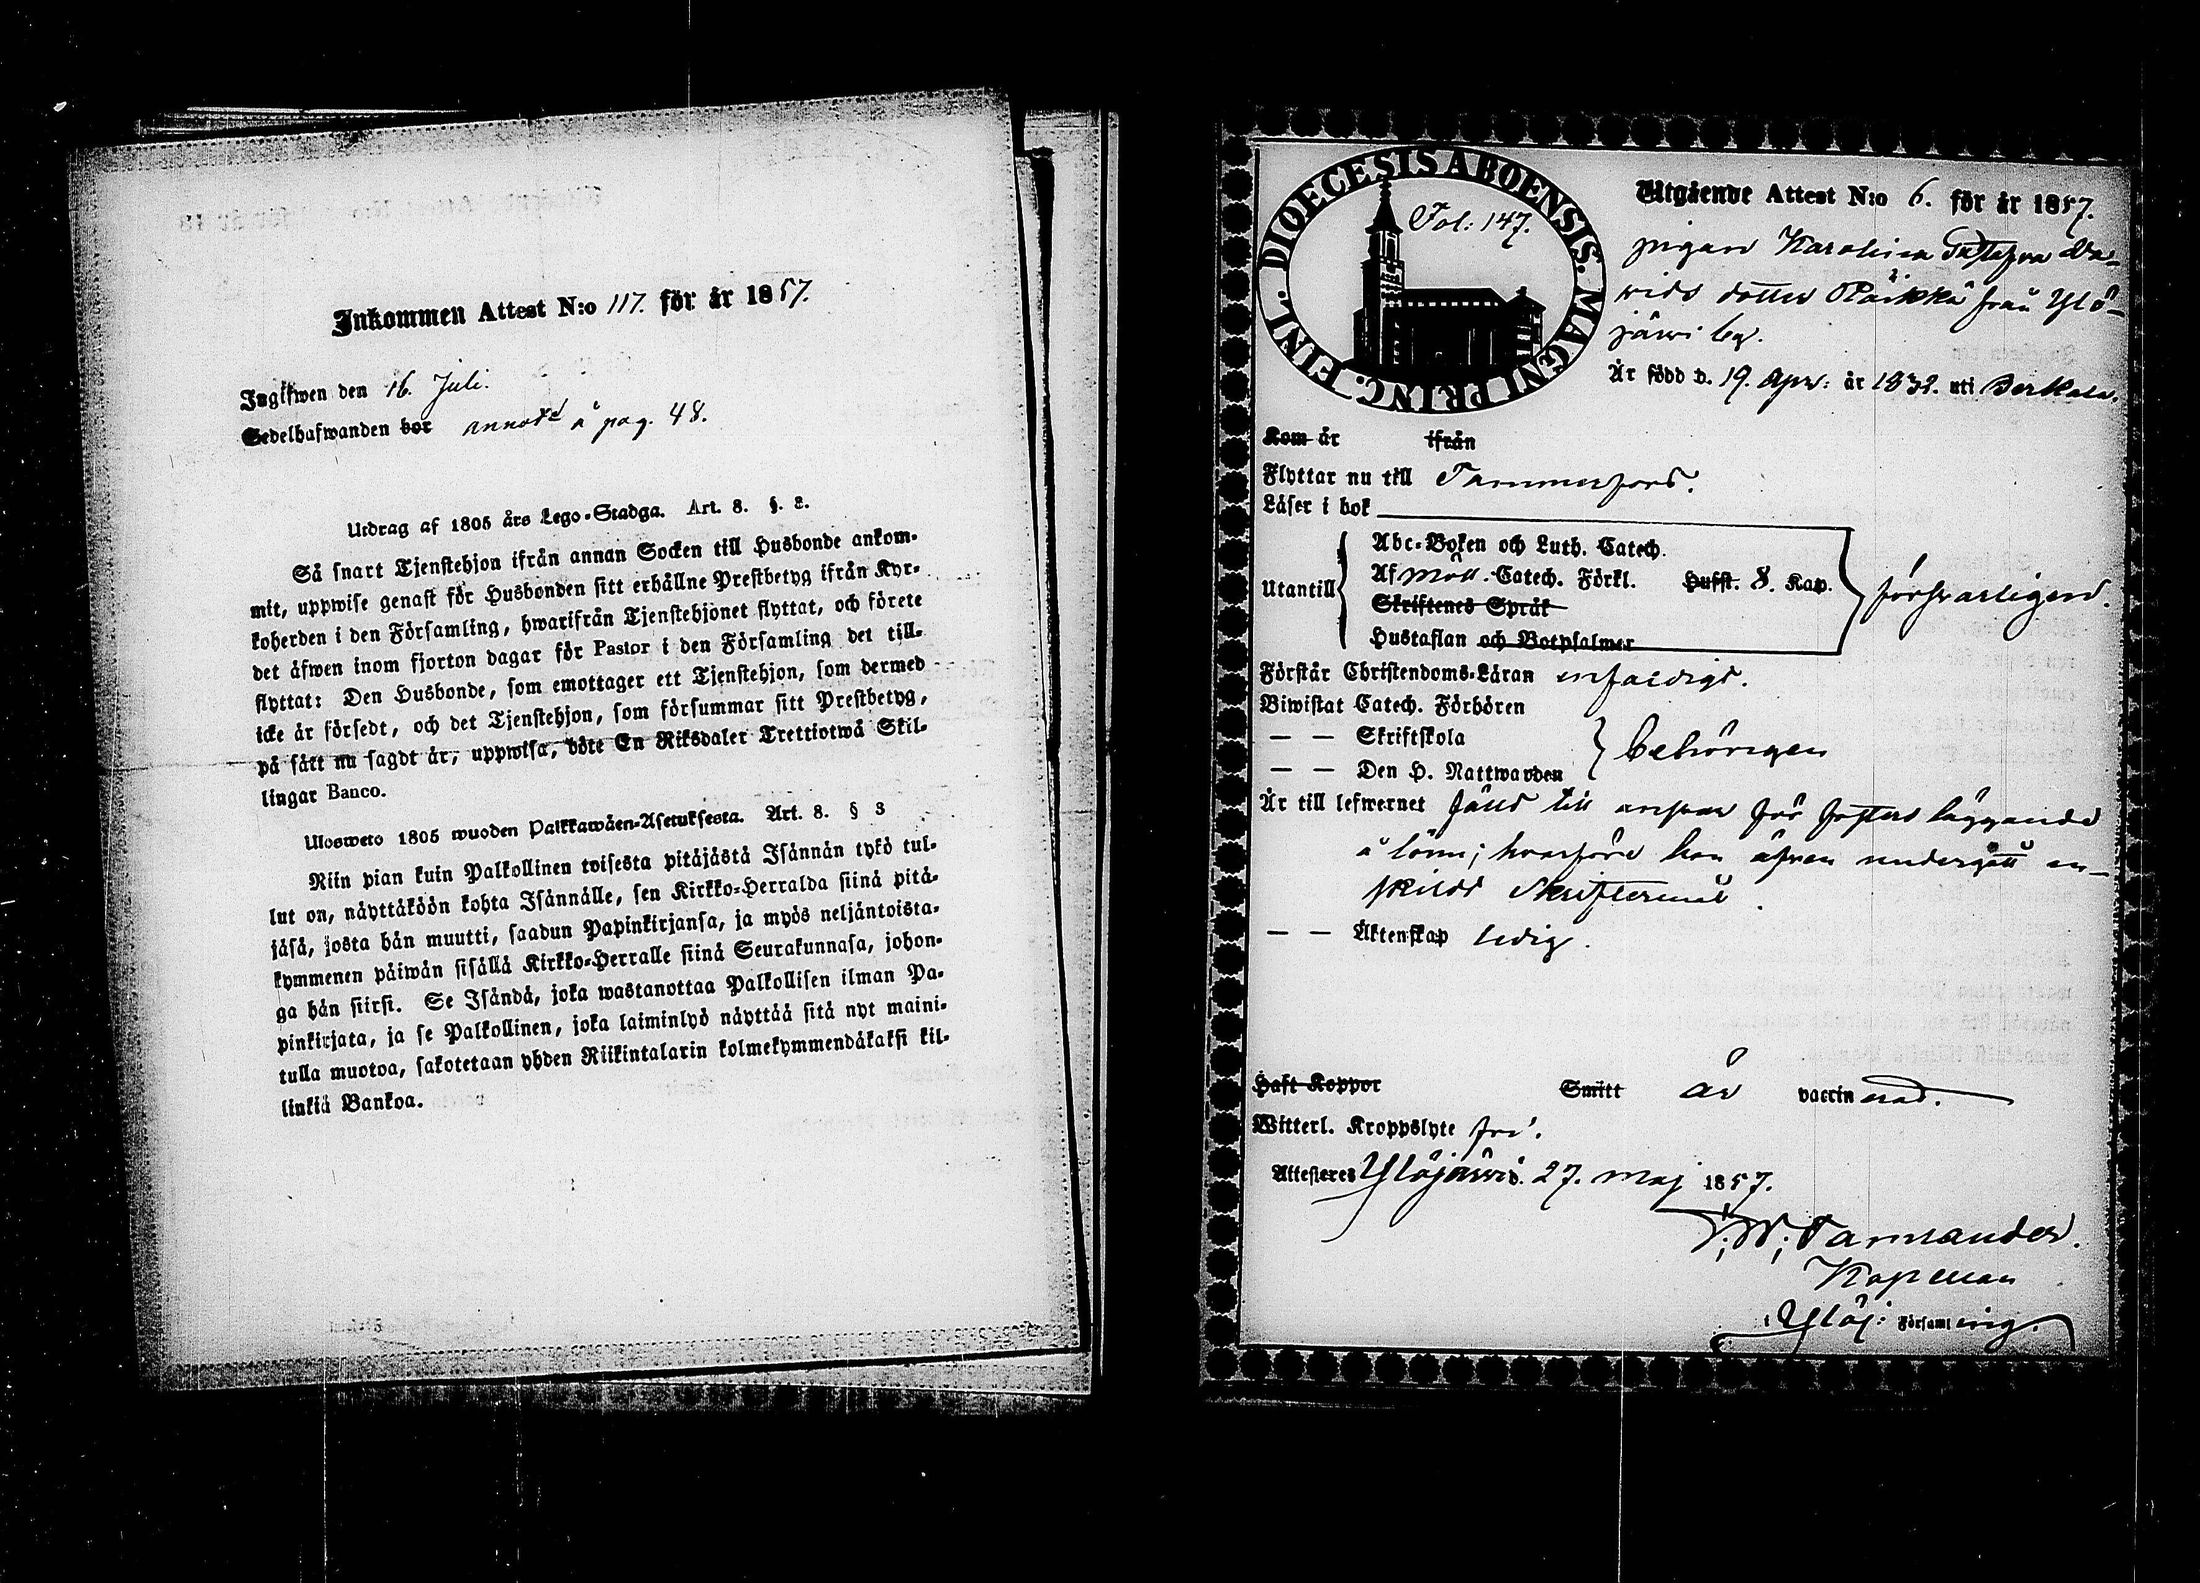 Inkommen Attest N:o 117. för år 1857.
Ingifwen den 16. Juli.
Sedelhafwanden bor annoterad å pag. 48.
Utdrag af 1805 års Lego-Stadga. Art. 8. §. 3.
Så snart Tjenstehjon ifrån annan Socken till Husbonde ankom-
mit, uppwise genast för Husbonden sitt erhållne Prestbetyg ifrån Kyr-
koherden i den Församling, hwarifrån Tjenstehjonet flyttat, och förete
det äfwen inom fjorton dagar för Pastor i den Församling det till-
flyttat: Den Husbonde, som emottager ett Tjenstehjon, som dermed
icke är försedt, och det Tjenstehjon, som försummar sitt Prestbetyg,
på sätt nu sagdt är, uppwisa, böte En Riksdaler Trettiotwå Skil-
lingar Banco.
Ulosweto 1805 wuoden Palkkawäen-Asetuksesta. Art. 8. § 3
Niin pian kuin Palkollinen toisesta pitäjästä Isännän tykö tul-
lut on, näyttäköön kohta Isännälle, sen Kirkko-Herralda siinä pitä-
jäsä, josta hän muutti, saadun Papinkirjansa, ja myös neljäntoista-
kymmenen päiwän sisällä Kirkko-Herralle siinä Seurakunnasa, johon-
ga hän siirsi. Se Isändä, joka wastanottaa Palkollisen ilman Pa-
pinkirjata, ja se Palkollinen, joka laiminlyö näyttää sitä nyt maini-
tulla muotoa, sakotetaan yhden Riikintalarin kolmekymmendäkaksi kil-
linkiä Bankoa.
DIOECESIS ABOENSIS. MAGNI PRINC. FINL.
Fol: 147.
Utgående Attest N:o 6. för år 1857.
pigan Karolina Gustafva Da-
vids dotter Pärkkä från Ylö-
järvi by.
Är född d. 19. Apr: år 1832. uti Berkala.
Kom år ifrån
Flyttar nu till Tammerfors.
Läser i bok
Utantill
Abc-Boken och Luth. Catech.
Af Möll. Catech. Förkl. Hufst. 8. Kap.
Skriftenes Språk
Hustaflan och Botpsalmer
försvarligen.
Förstår Christendoms-Läran enfaldigt.
Biwistat Catech. Förhören
— — Skriftskola
— — Den H. Nattwarden
behörigen
Är till lefwernet fälld till ansvar för fosters läggande
å lönn; hvarföre hon äfven undergått en-
skildt Skriftermål.
— — Äktenskap ledig.
Haft Koppor Smitt är vaccinerad.
Witterl. Kroppslyte fri.
Attesteres Ylöjärvi d. 27. Maj 1857.
Tammander.
Kapellan
i Ylöj: Församling.